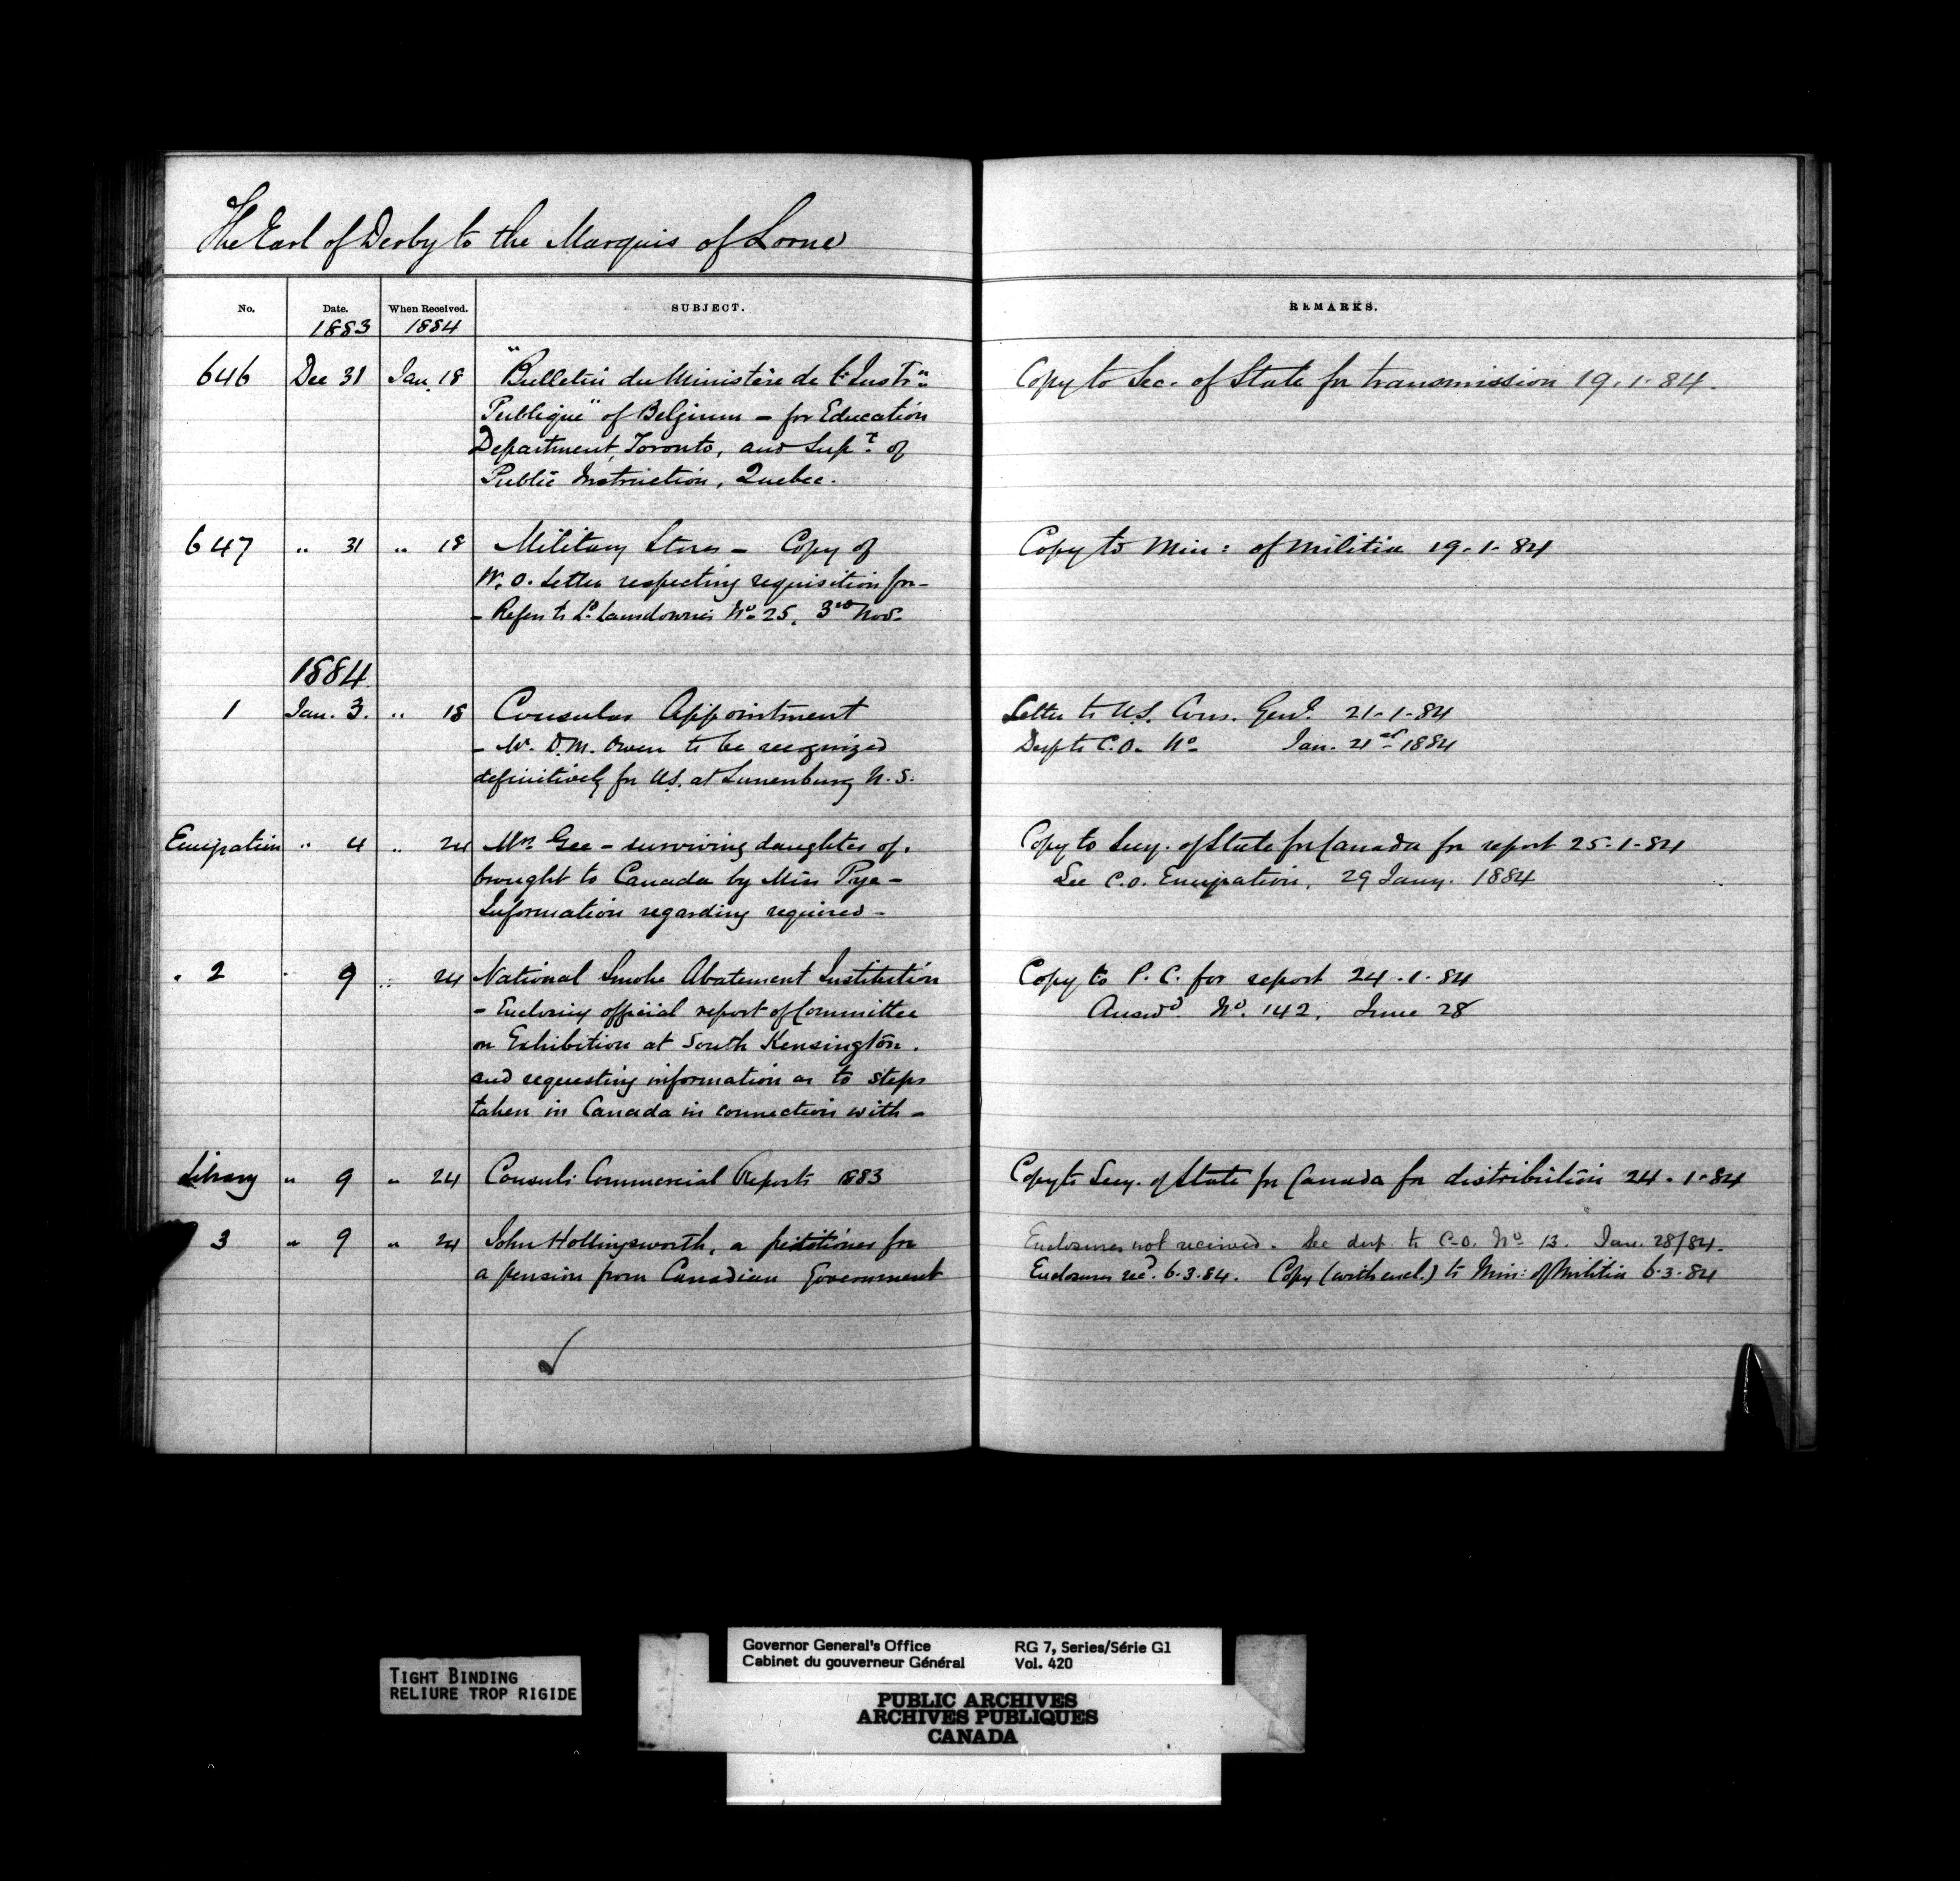 The Earl of Derby to the Marquis of Lorne
No. Date. When Received. SUBJECT. REMARKS.
1883 1884
646 Dec 31 Jan. 18 "Bulletin du Ministère de l'Instrn. Copy to Sec. of State for transmission 19.1.84.
Publique" of Belgium - for Education
Department, Toronto, and Supt. of
Public Instruction, Quebec.
647 " 31 " 18 Military Stores - Copy of Copy to Min: of Militia 19-1-84
W.O. Letter respecting requisition for -
- Refers to Ld. Lansdowne's No. 25, 3rd Nov.
1884
1 Jan. 3. " 18 Consular Appointment Letter to U.S. Cons. Genl. 21-1-84
- Mr. D.M. Owen to be recognized Desp to C.O. No. Jan. 21st 1884
definitively for U.S. at Lunenburg N.S.
Emigration " 4 " 24 Mrs. Gee - surviving daughter of, Copy to Secy. of State for Canada for report 25-1-84
brought to Canada by Miss Rye - See C.O. Emigration, 29 Jany. 1884
Information regarding required -
" 2 " 9 " 24 National Smoke Abatement Institution Copy to P.C. for report 24.1.84
- Enclosing official report of Committee Answd. No. 142, June 28
on Exhibition at South Kensington.
and requesting information as to steps
taken in Canada in connection with -
Library " 9 " 24 Consuls: Commercial Reports 1883 Copy to Secy. of State for Canada for distribution 24.1-84
3 " 9 " 24 John Hollingsworth, a petitioner for Enclosures not received. See desp. to C.O. No. 13. Jan. 28/84.
a pension from Canadian Government Enclosures recd. 6.3.84. Copy (with encl.) to Min: of Militia 6.3.84
TIGHT BINDING
RELIURE TROP RIGIDE
Governor General's Office RG 7, Series/Série G1
Cabinet du gouverneur Général Vol. 420
PUBLIC ARCHIVES
ARCHIVES PUBLIQUES
CANADA